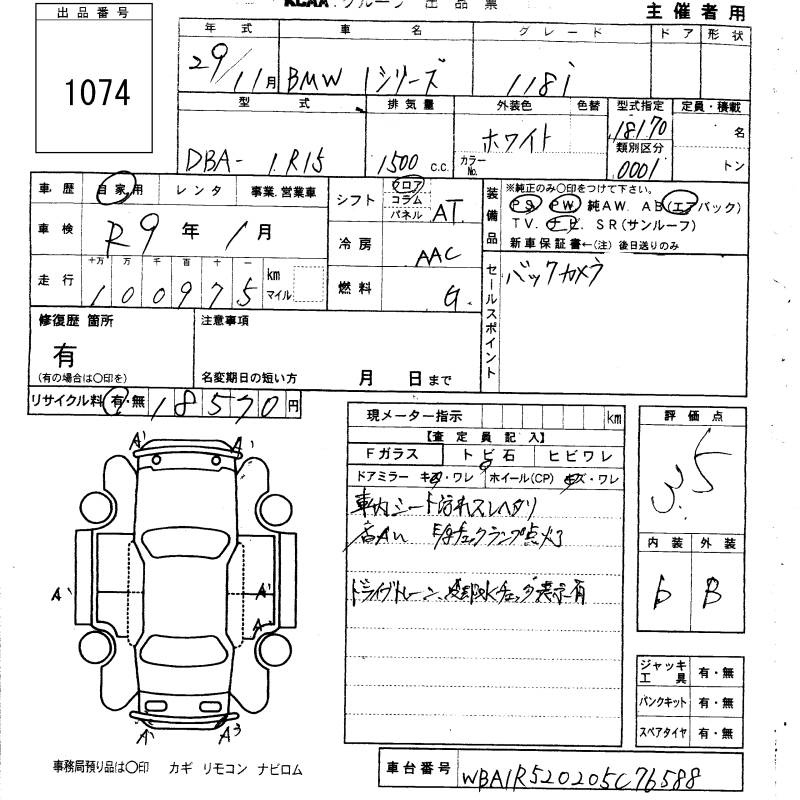 KCAA グループ 出品票
主催者用
出品番号
1074
年式 車名 グレード ドア 形状
29/11月 BMW 1シリーズ 118i
型式 排気量 外装色 色替 型式指定 定員・積載
DBA- 1R15 1500 c.c. ホワイト カラーNo. 18170 名
類別区分
0001 トン
車歴 自家用 レンタ 事業.営業車
シフト フロア コラム パネル AT
装備品 ※純正のみ〇印をつけて下さい。
PS PW 純AW. AB(エアバック)
TV. ナビ. SR(サンルーフ)
新車保証書←(注) 後日送りのみ
車検 R9年 1月
冷房 AAC
走行 十万 万 千 百 十 一
100975 km マイル
燃料 G.
セールスポイント バックカメラ
修復歴 箇所 注意事項
有
(有の場合は〇印を) 名変期日の短い方 月 日まで
リサイクル料 有・無 18570円
現メーター指示 km
【査定員記入】
Fガラス トビ石 ヒビワレ
ドアミラー キズ・ワレ ホイール(CP) キズ・ワレ
車内シート汚れスレヘタリ
チェックランプ点灯
ドライブトレーン、冷却水チェック表示有
評価点
3.5
内装 外装
b B
A' A'
A' A'
A'
A' A3
ジャッキ工具 有・無
パンクキット 有・無
スペアタイヤ 有・無
事務局預り品は〇印 カギ リモコン ナビロム
車台番号 WBA1R520205C76588